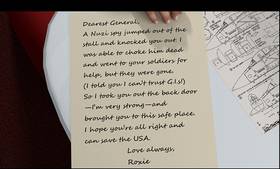 Dearest General,
A Nuzi spy jumped out of the
stall and knocked you out. I
was able to choke him dead
and went to your soldiers for
help, but they were gone.
(I told you I can't trust G.I.s!)
So I took you out the back door
—I'm very strong—and
brought you to this safe place.
I hope you're all right and
can save the USA.
Love always,
Roxie